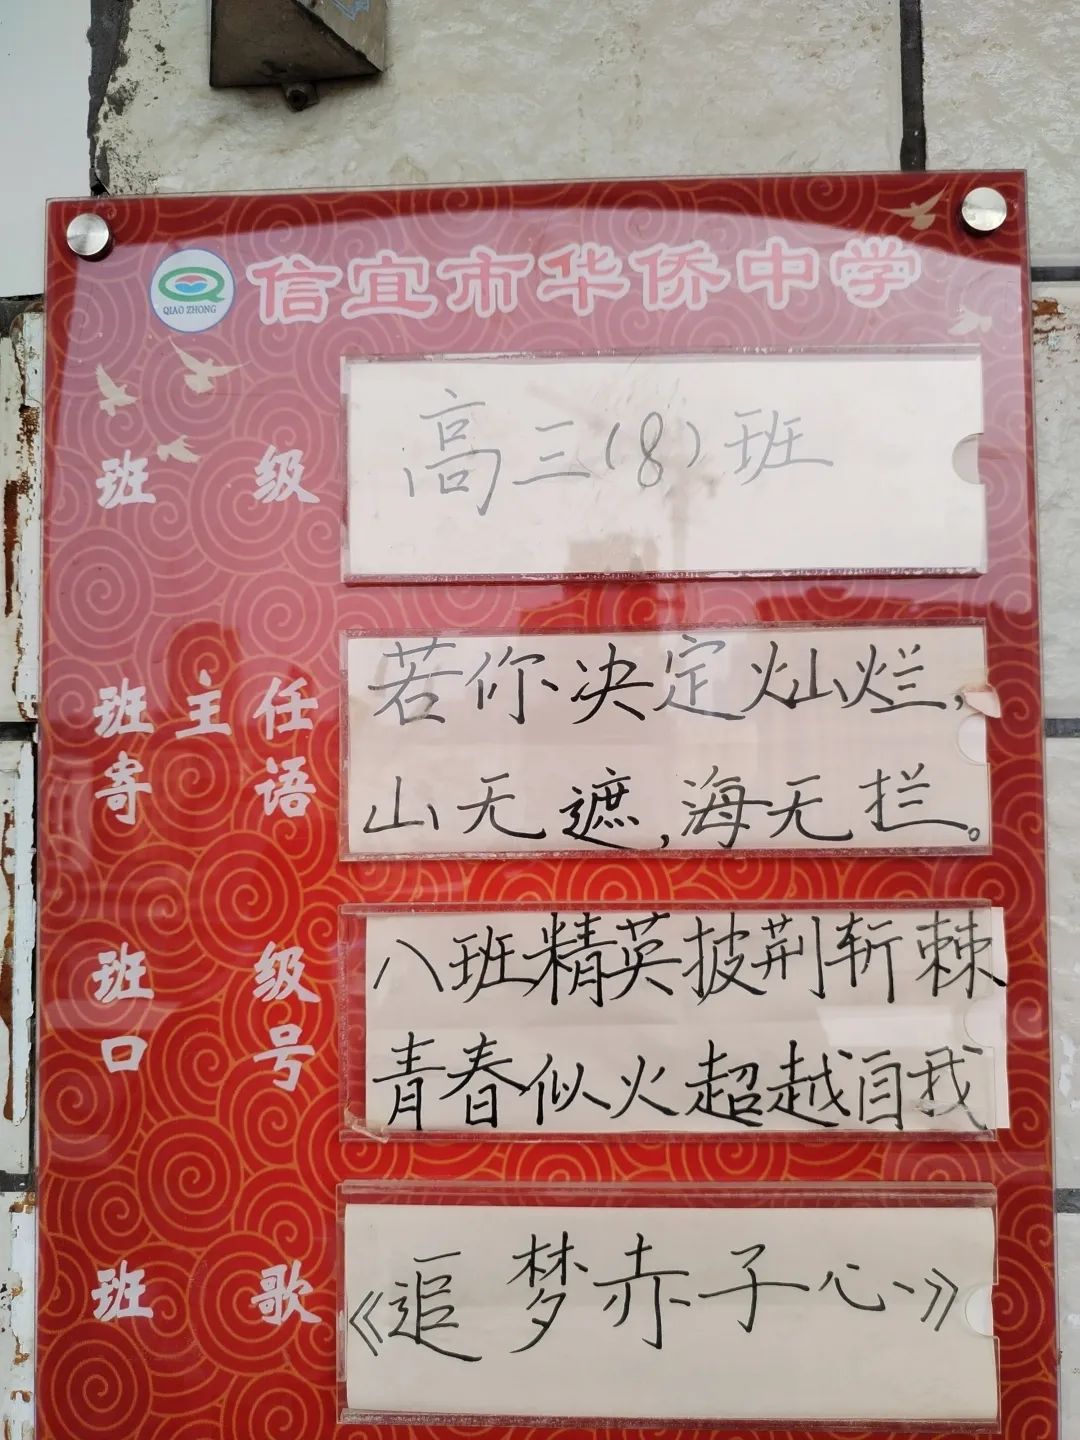 信宜市华侨中学
QIAO ZHONG
班级
高三(8)班
班主任
寄语
若你决定灿烂,
山无遮,海无拦。
班级
口号
八班精英披荆斩棘
青春似火超越自我
班歌
《追梦赤子心》